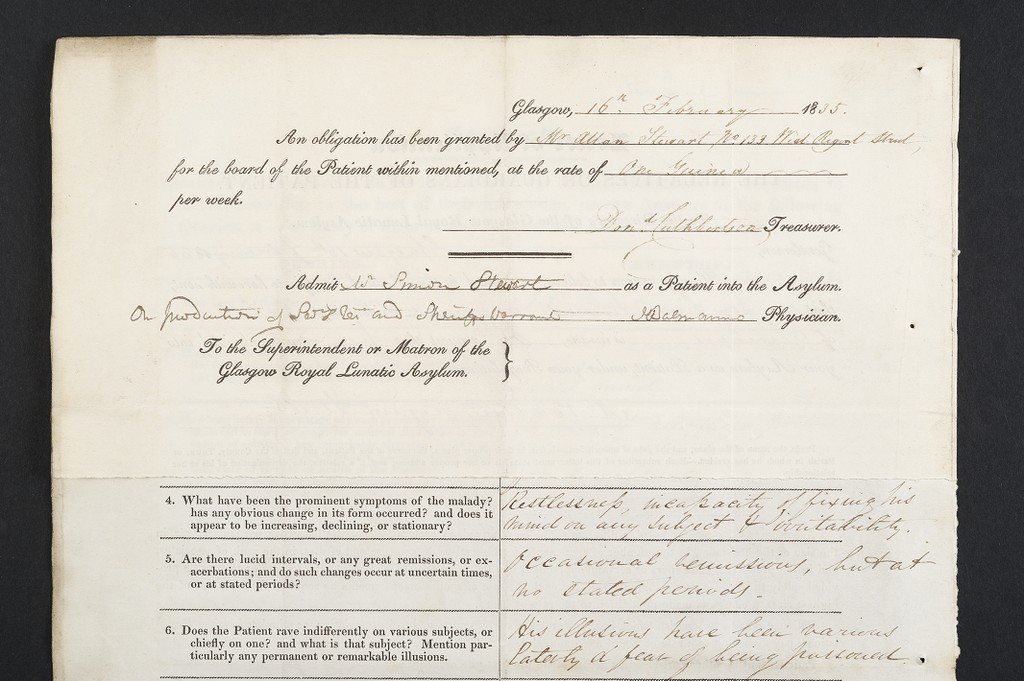 Glasgow, 16th February 1835.
An obligation has been granted by Mr Allan Stewart No 133 West Regent Street,
for the board of the Patient within mentioned, at the rate of One Guinea
per week.
Dond Cuthbertson Treasurer.
Admit Mr Simon Stewart as a Patient into the Asylum.
On production of and Sheriffs Warrant Physician.
To the Superintendent or Matron of the
Glasgow Royal Lunatic Asylum.
4. What have been the prominent symptoms of the malady?
has any obvious change in its form occurred? and does it
appear to be increasing, declining, or stationary?
Restlessness, incapacity of fixing his
mind on any subject & irritability.
5. Are there lucid intervals, or any great remissions, or ex-
acerbations; and do such changes occur at uncertain times,
or at stated periods?
Occasional remissions, but at
no stated periods.
6. Does the Patient rave indifferently on various subjects, or
chiefly on one? and what is that subject? Mention par-
ticularly any permanent or remarkable illusions.
His illusions have been various
Laterly a fear of being poisoned